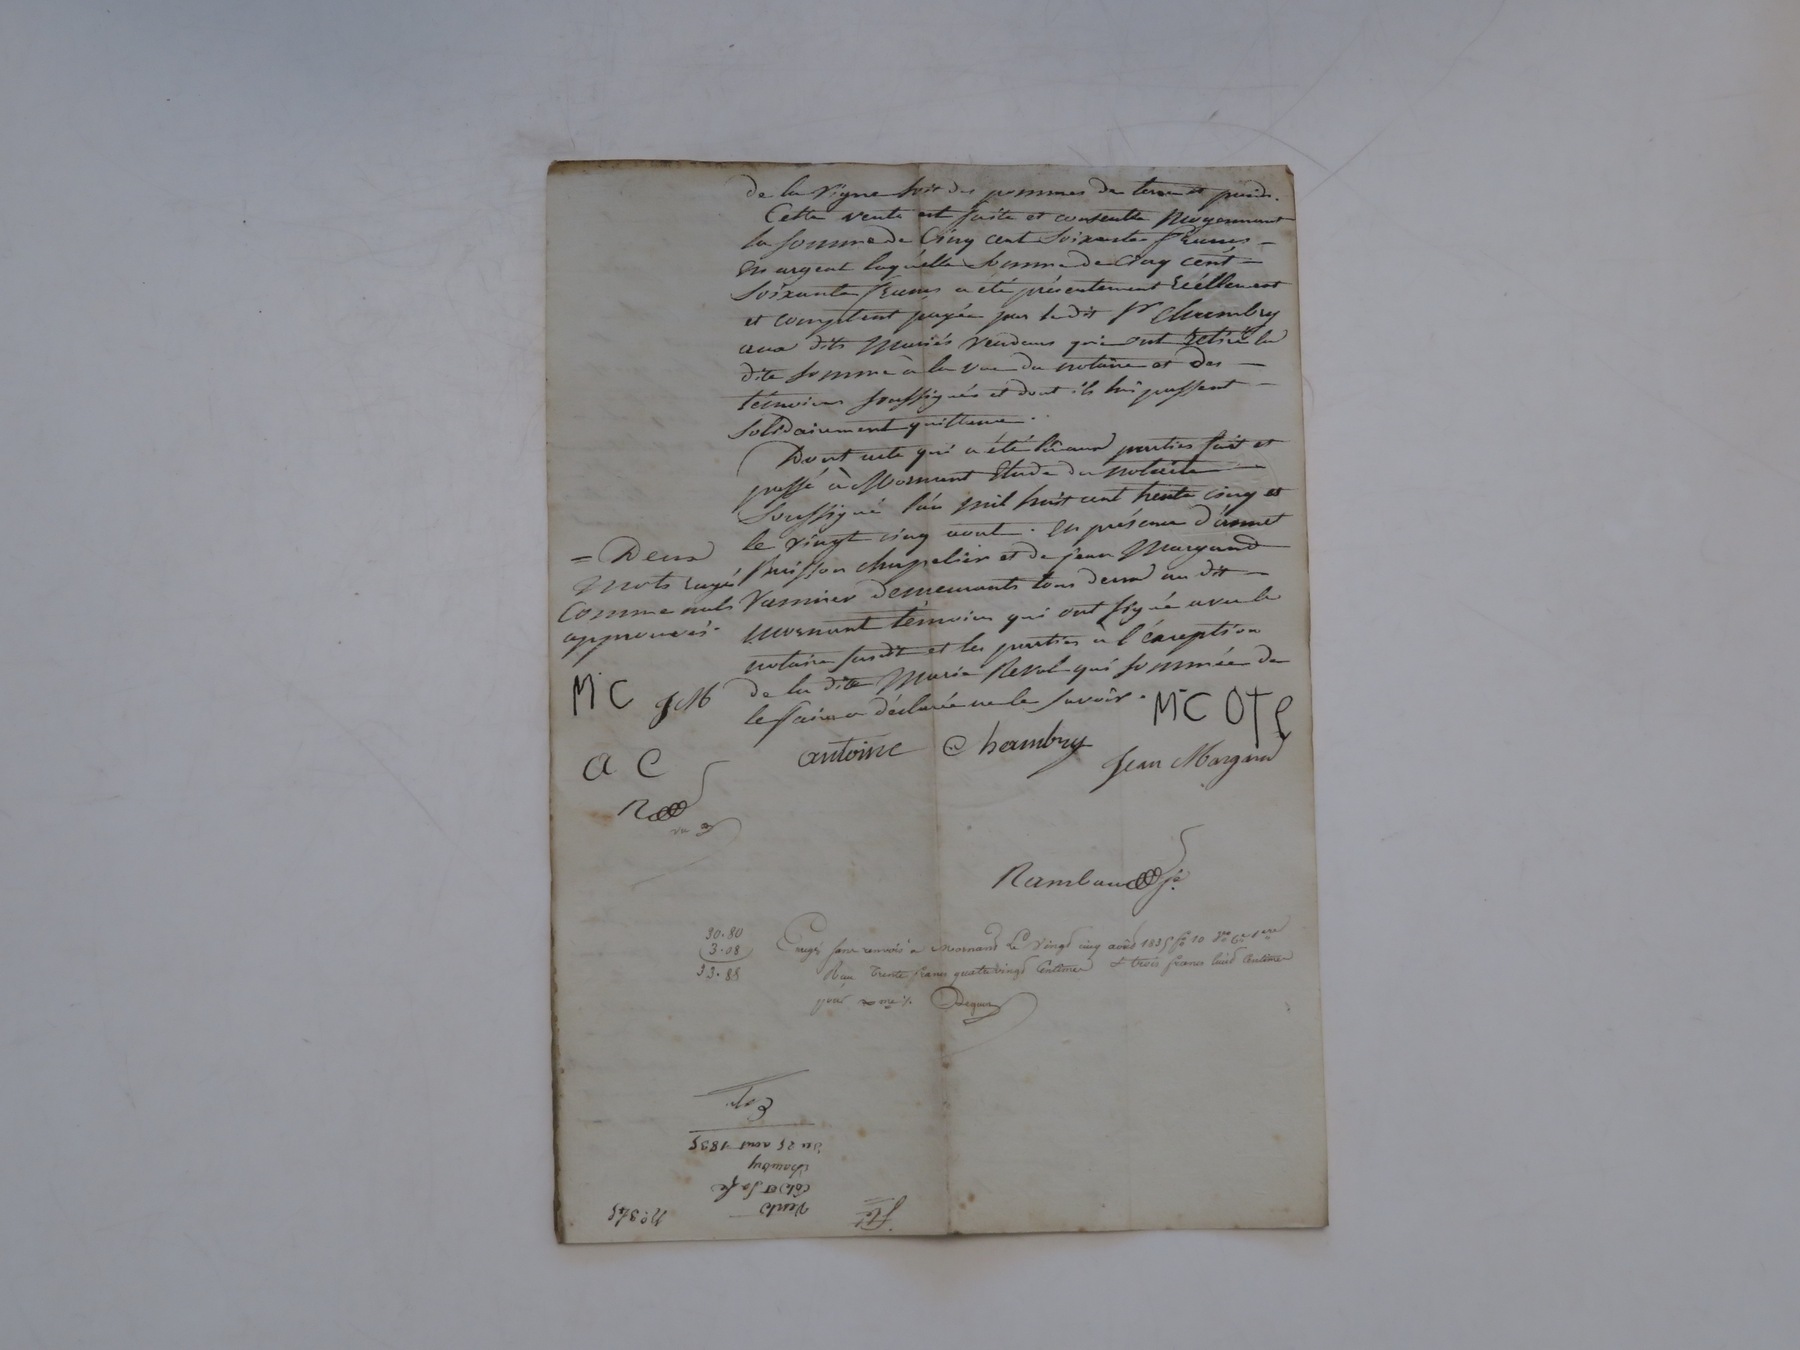 de la vigne soit des pommes de terre et jardin.
Cette vente est faite et consentie moyennant
la somme de Cinq cent Soixante francs
en argent laquelle somme de Cinq cent
soixante francs a été présentement réellement
et comptant payée par le dit sr Chambry
aux dits Mariés vendeurs qui ont retiré la
dite somme à la vue du notaire et des
témoins soussignés et dont ils lui passent
solidairement quittance.
Dont acte qui a été lu aux parties fait et
passé à Mornant Etude du notaire
soussigné l'an mil huit cent trente cinq et
le vingt cinq aout. en présence d'
chapelier et de jean Margand
Vannier demeurants tous deux au dit
mornant témoins qui ont signé avec le
notaire susdit et les parties à l'éxception
de la dite Marie Revol qui sommée de
le faire a déclaré ne le savoir.
= Deux
Mots rayés
Comme nuls
approuvés.
MC JM
a C
R
MC OTE
antoine Chambry
Jean Margand
Rambaud
30.80
3.08
33.88
sans renvoi à Mornant le vingt cinq août 1835 fo 10
Reçu trente francs quatre vingt Centimes & trois francs huit Centimes
pour
Du 25 aout 1835
Chambry
Vente
No 345